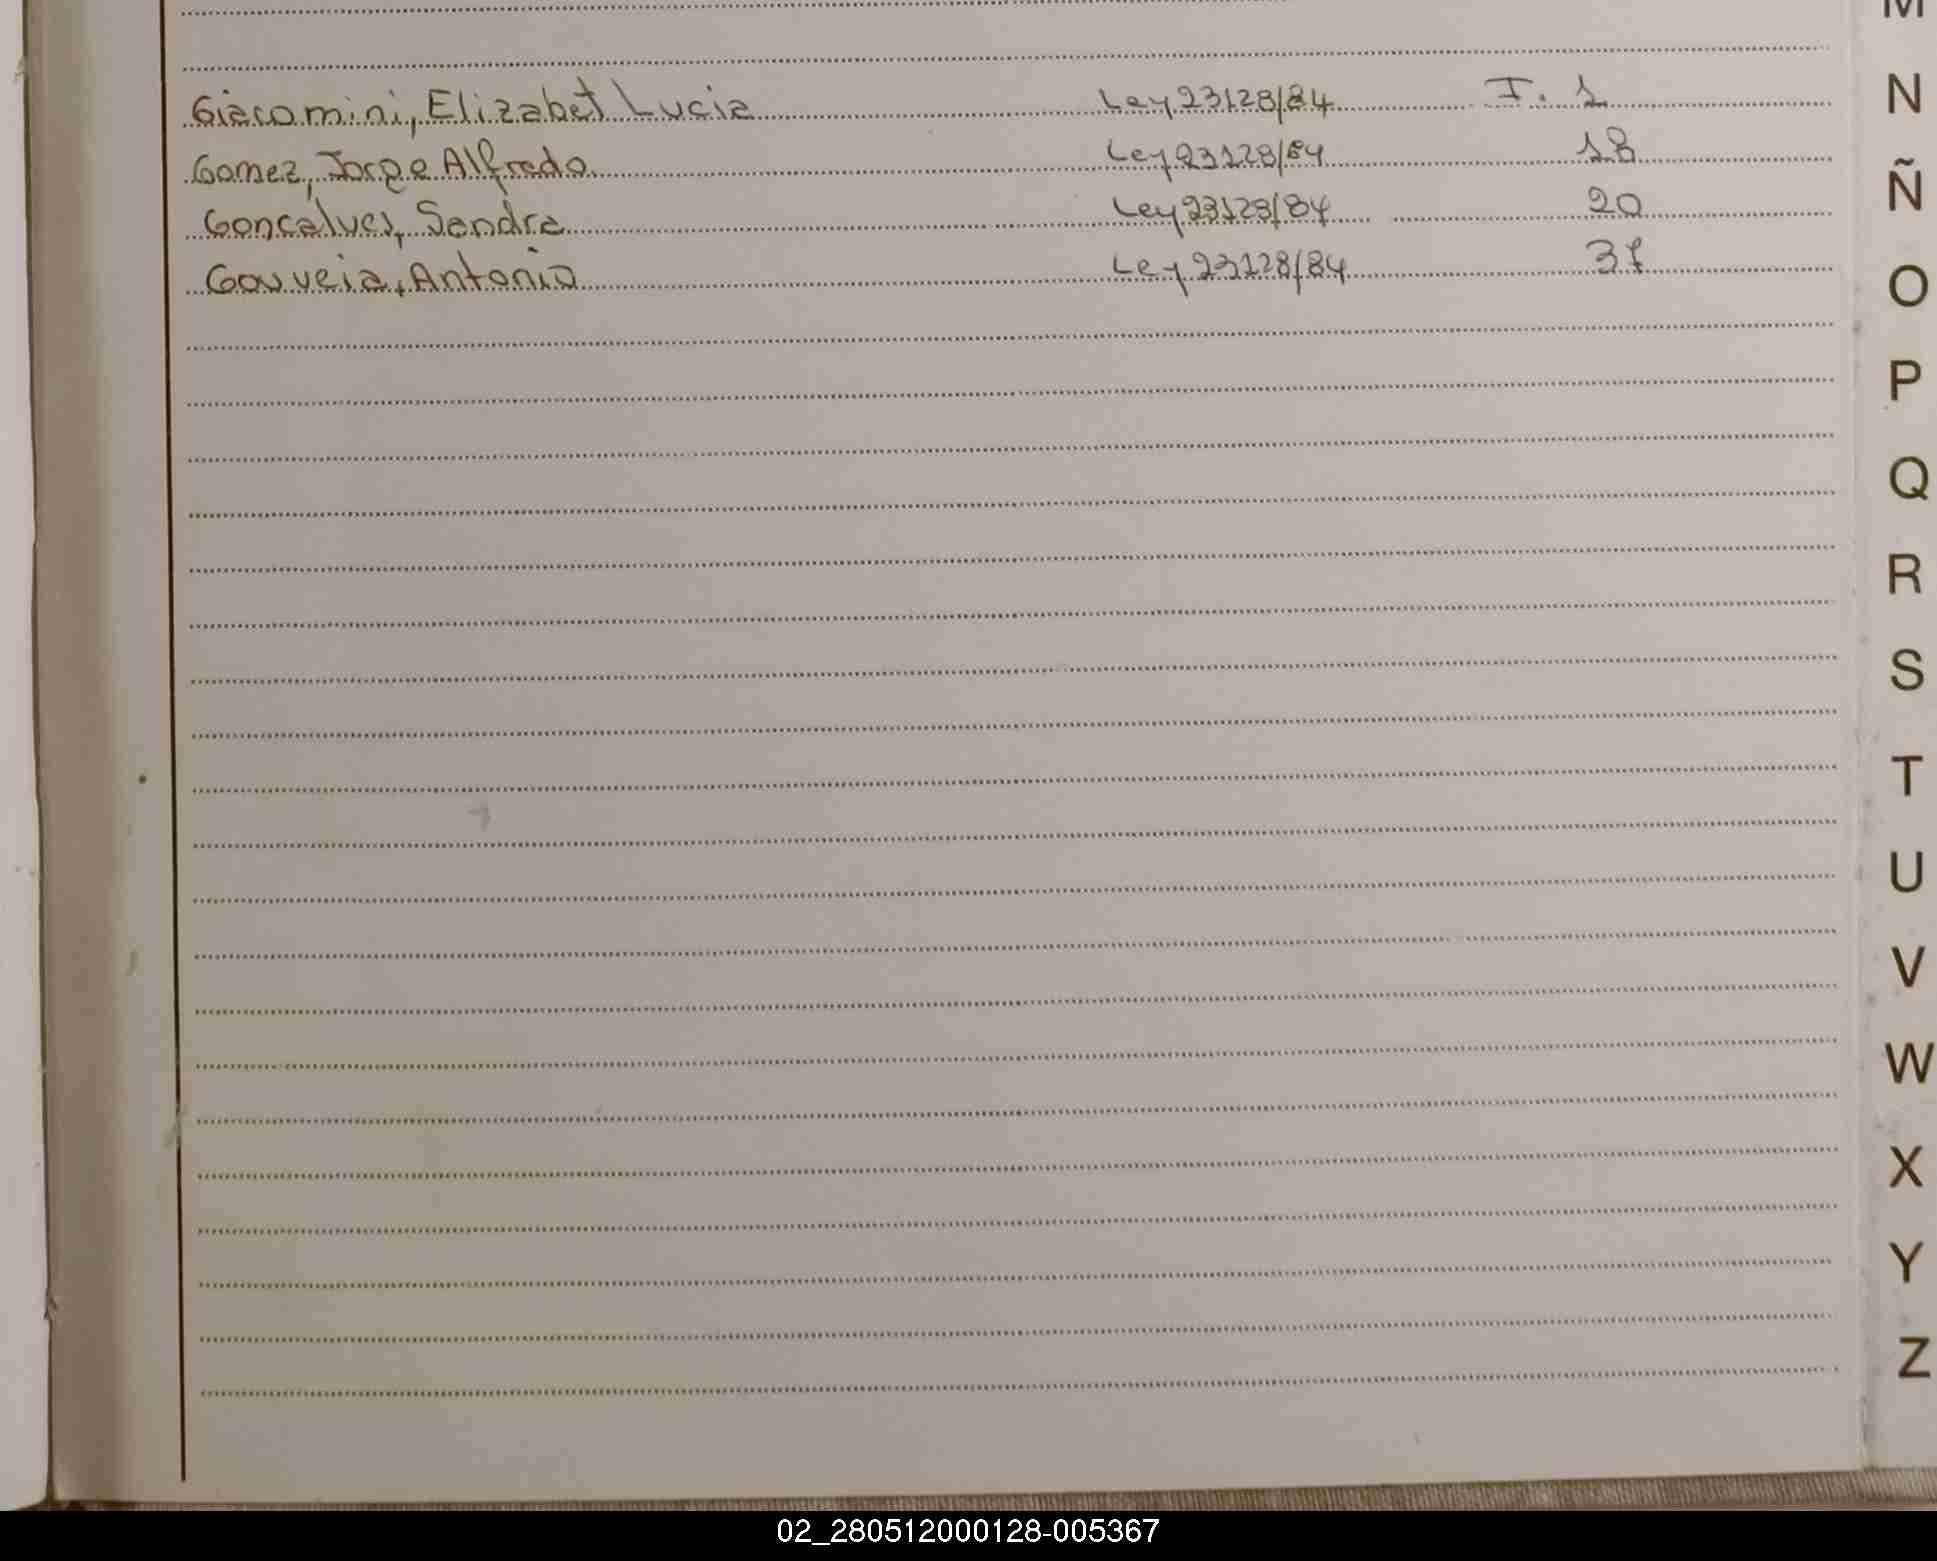 M
Giacomini, Elizabet Lucia Ley 23128/84 I. 1
N
Gomez, Jorge Alfredo. Ley 23128/84 18
Ñ
Goncalves, Sandra Ley 23128/84 20
Gouveia, Antonio Ley 23128/84 37
O
P
Q
R
S
T
U
V
W
X
Y
Z
02_280512000128-005367